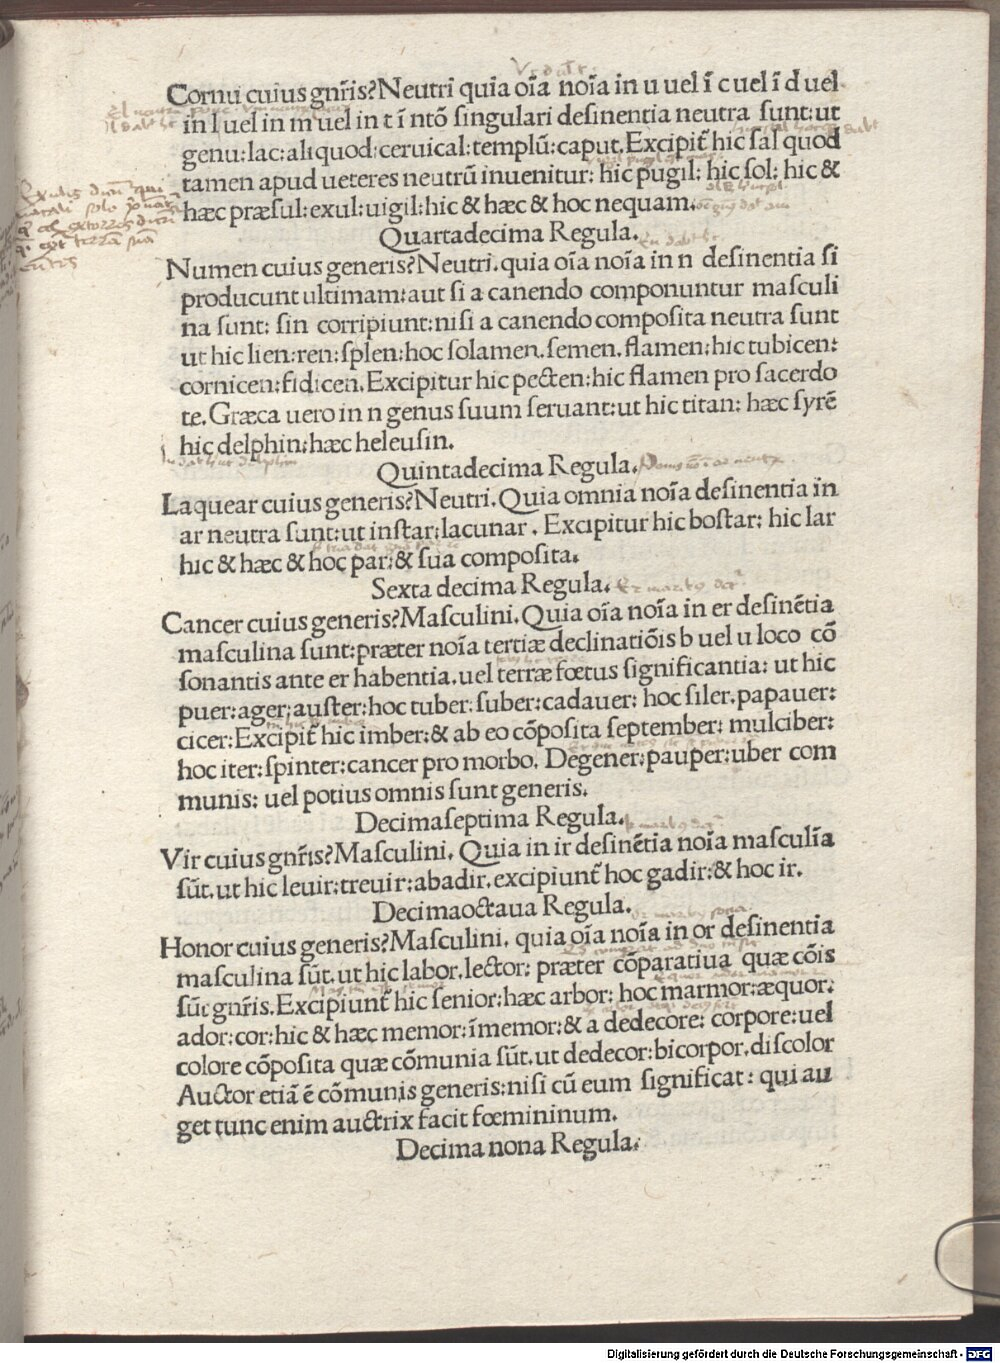 Cornu cuius gnr̃is?Neutri quia oīa noīa in u uel ī c uel ī d uel
in l uel in m uel in t ī ntō ſingulari deſinentia neutra ſunt:ut
genu:lac:aliquod:ceruical:templū:caput.Excipit̃ hic ſal quod
tamen apud ueteres neutrū inuenitur: hic pugil: hic ſol: hic &
hæc præſul:exul:uigil:hic & hæc & hoc nequam.
Quartadecima Regula.
Numen cuius generis?Neutri.quia oīa noīa in n deſinentia ſi
producunt ultimam:aut ſi a canendo componuntur maſculi
na ſunt: ſin corripiunt:niſi a canendo compoſita neutra ſunt
ut hic lien:ren:ſplen:hoc ſolamen.ſemen.flamen:hic tubicen:
cornicen:fidicen.Excipitur hic pecten:hic flamen pro ſacerdo
te.Græca uero in n genus ſuum ſeruant:ut hic titan: hæc ſyrē
hic delphin:hæc heleuſin.
Quintadecima Regula.
Laquear cuius generis?Neutri.Quia omnia noīa deſinentia in
ar neutra ſunt:ut inſtar:lacunar. Excipitur hic boſtar: hic lar
hic & hæc & hoc par:& ſua compoſita.
Sexta decima Regula.
Cancer cuius generis?Maſculini.Quia oīa noīa in er deſinētia
maſculina ſunt:præter noīa tertiæ declinatiōis b uel u loco cō
ſonantis ante er habentia.uel terræ fœtus ſignificantia: ut hic
puer:ager:auſter:hoc tuber:ſuber:cadauer: hoc ſiler.papauer:
cicer:Excipit̃ hic imber:& ab eo cōpoſita ſeptember: mulciber:
hoc iter:ſpinter:cancer pro morbo. Degener:pauper:uber com
munis: uel potius omnis ſunt generis.
Decimaſeptima Regula.
Vir cuius gnr̃is?Maſculini. Quia in ir deſinētia noīa maſculīa
ſūt.ut hic leuir:treuir:abadir.excipiunt̃ hoc gadir:& hoc ir.
Decimaoctaua Regula.
Honor cuius generis?Maſculini. quia oīa noīa in or deſinentia
maſculina ſūt.ut hic labor.lector: præter cōparatiua quæ cōis
ſūt gnr̃is.Excipiunt̃ hic ſenior:hæc arbor: hoc marmor:æquor:
ador:cor:hic & hæc memor:īmemor:& a dedecore: corpore:uel
colore cōpoſita quæ cōmunia ſūt.ut dedecor:bicorpor.diſcolor
Auctor etiā ē cōmunis generis:niſi cū eum ſignificat: qui au
get tunc enim auctrix facit fœmininum.
Decima nona Regula.
Digitalisierung gefördert durch die Deutsche Forschungsgemeinschaft - DFG